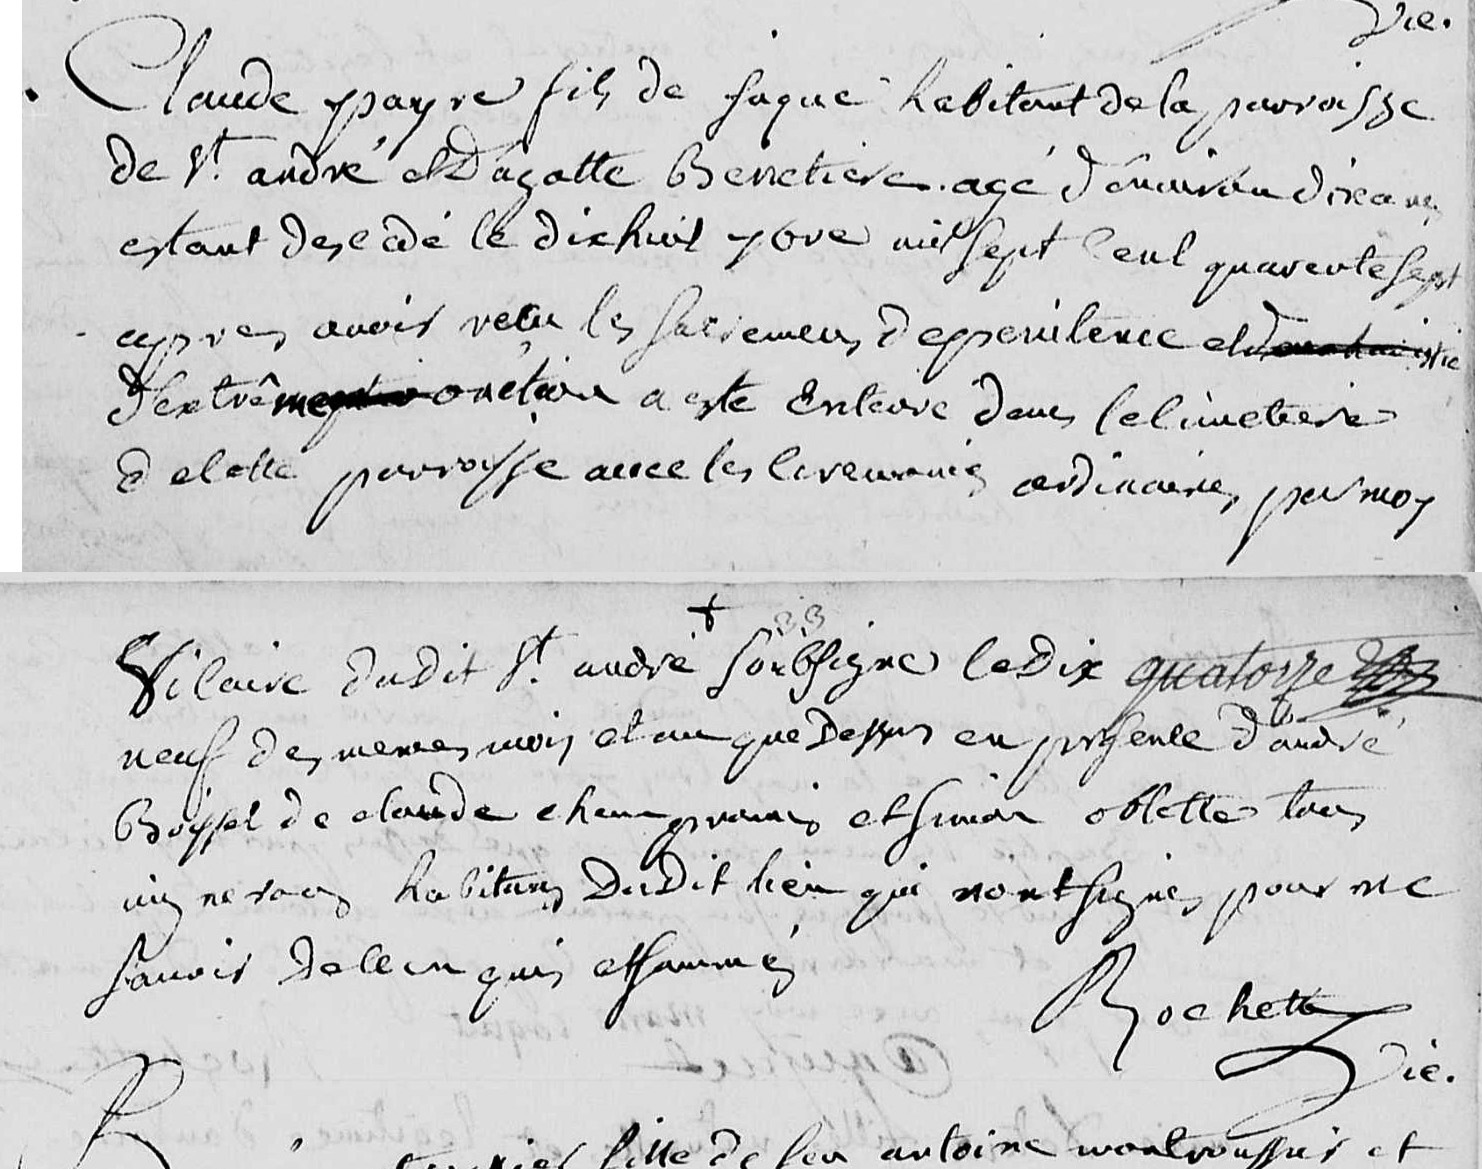 vie.
Claude payre fils de jaque habitant de la parroisse
de St. andré et Dagatte Berretiere. agé d'environ dix ans
estant desedé le dixhuit 9bre mil sept cent quarente sept
apres avois reçu les sacremens de penitence et
d'extrême onction a este enterré dans le cimetiere
de lette parroisse avec les ceremonies ordinaires par moy
✝ 33
Vicaire dudit St. andre soubsigne le dix quatorze
neuf des memes mois et an que Dessus en presence d'andré
Boissel de claude champranis et simon oblette tous
vignerons habitans Dudit lieu qui nont signés pour ne
savois de ce enquis et sommés
Rochette
vie.
fille de feu antoine montroussier et